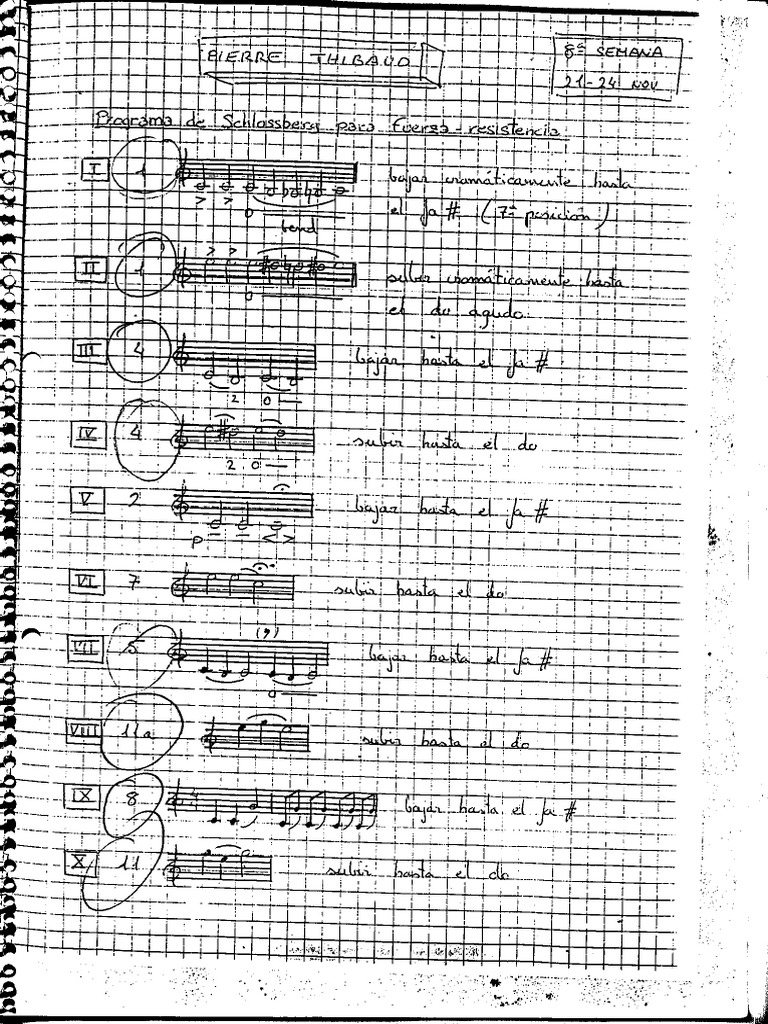 PIERRE THIBAUD
8ª SEMANA
21-24 NOV
Programa de Schlossberg para fuerza-resistencia
I 1 bajar cromáticamente hasta
el fa # (7ª posición)
0
bend
II 1 subir cromáticamente hasta
0
el do agudo.
III 4 bajar hasta el fa #
2 0
IV 4 subir hasta el do
2 0
V 2 bajar hasta el fa #
p
VI 7 subir hasta el do
VII 5 (,) bajar hasta el fa #
0
VIII 11a subir hasta el do
IX 8 bajar hasta el fa #
X 11 subir hasta el do